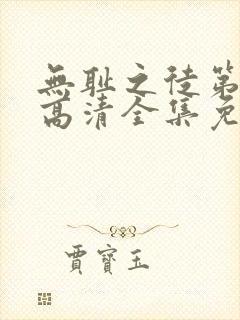 無耻之徒第
高清全集免
賈寶玉